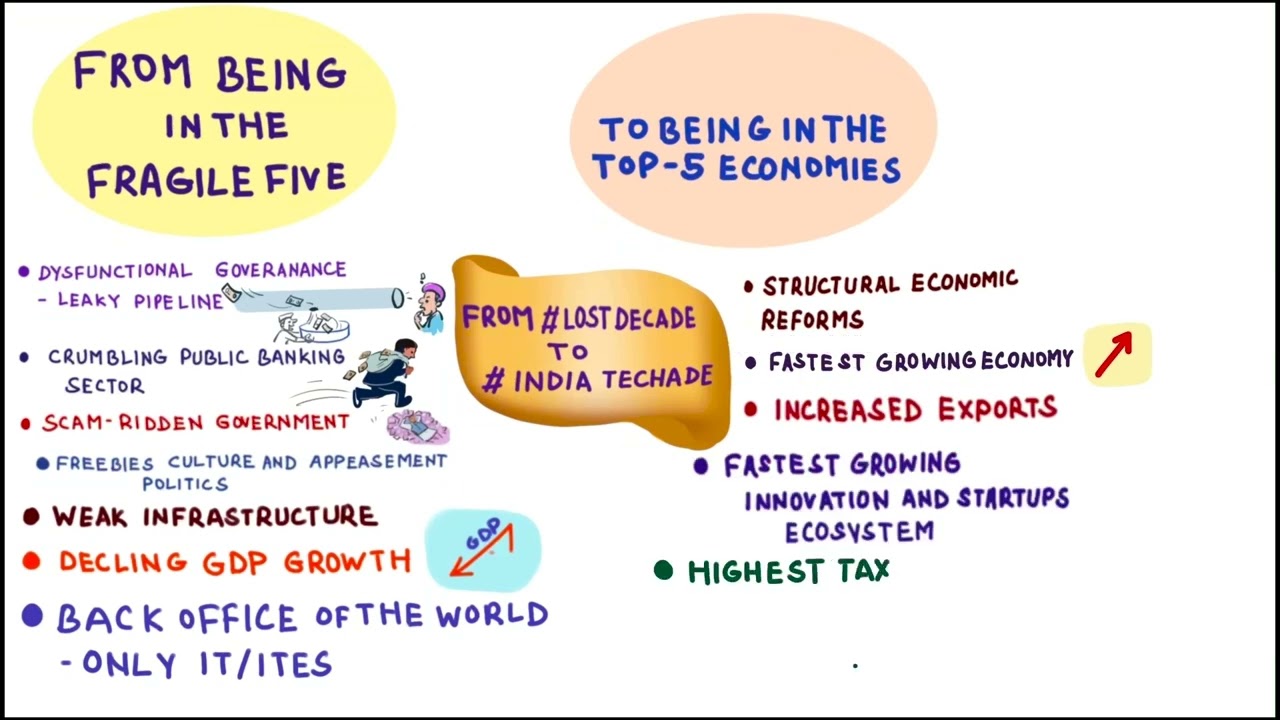 FROM BEING
IN THE
FRAGILE FIVE
TO BEING IN THE
TOP-5 ECONOMIES
• DYSFUNCTIONAL GOVERANANCE
- LEAKY PIPELINE
• CRUMBLING PUBLIC BANKING
SECTOR
• SCAM-RIDDEN GOVERNMENT
• FREEBIES CULTURE AND APPEASEMENT
POLITICS
• WEAK INFRASTRUCTURE
• DECLING GDP GROWTH
GDP
• BACK OFFICE OF THE WORLD
- ONLY IT/ITES
FROM #LOST DECADE
TO
# INDIA TECHADE
• STRUCTURAL ECONOMIC
REFORMS
• FASTEST GROWING ECONOMY
• INCREASED EXPORTS
• FASTEST GROWING
INNOVATION AND STARTUPS
ECOSYSTEM
• HIGHEST TAX